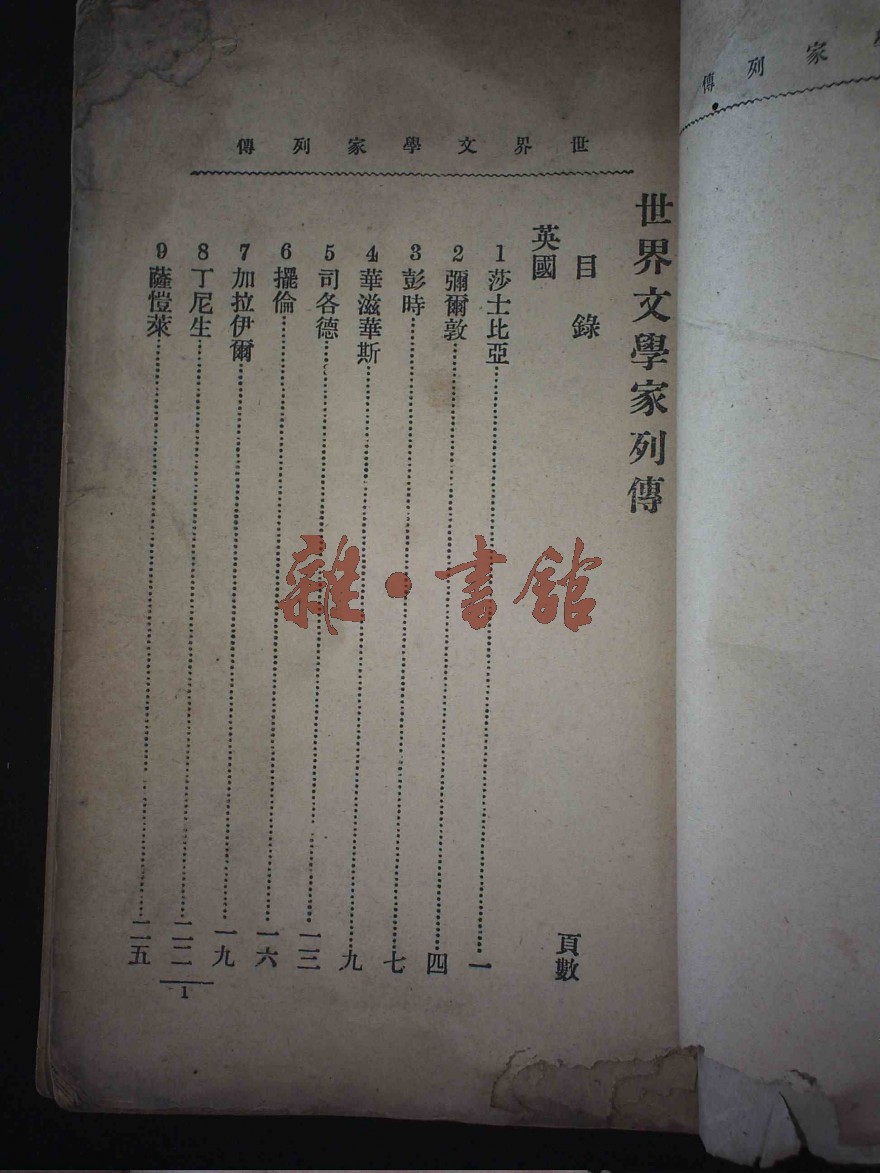 世界文學家列傳
世界文學家列傳
目錄
英國 頁數
1 莎士比亞 一
2 彌爾敦 四
3 彭時 七
4 華滋華斯 九
5 司各德 一三
6 擺倫 一六
7 加拉伊爾 一九
8 丁尼生 二二
9 薩愷萊 二五
1
家列傳
雜·書館